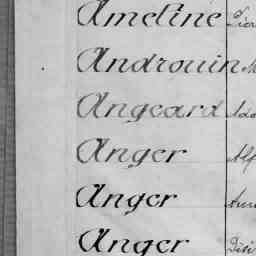 Ameline
Androuin
Angeard
Anger
Anger
Anger